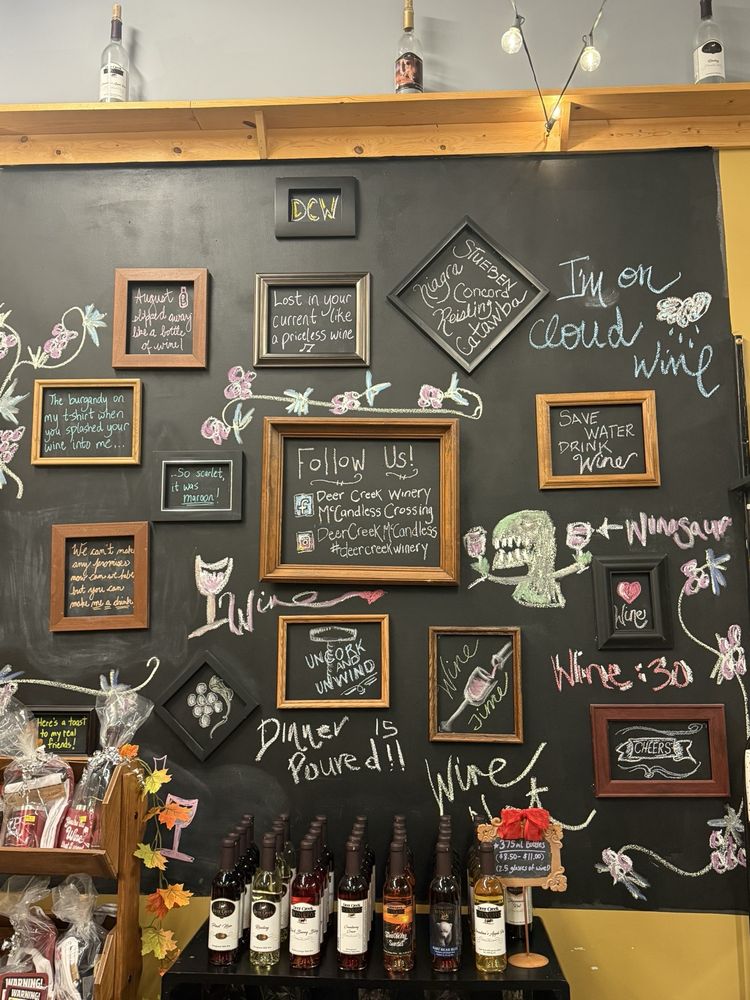 DCW
August
slipped away
like a bottle
of wine!
Lost in your
current like
a priceless wine
STUEBEN
Niagra
Concord
Reisling
Catawba
I'm on
cloud
wine
The burgandy on
my t-shirt when
you splashed your
wine into me...
...So scarlet,
it was
maroon!
Follow Us!
Deer Creek Winery
McCandless Crossing
DeerCreekMcCandless
#deercreekwinery
SAVE
WATER
DRINK
Wine
Winosaur
We can't make
any promises
now can we babe
but you can
make me a drink
I Wine
UNCORK
AND
UNWIND
Wine
Time
Wine
Wine:30
CHEERS
Here's a toast
to my real
friends!
Dinner is
Poured!!
Wine
375mL Bottles
$8.50-$11.00
(2.5 glasses of wine)
Pinot Noir
Riesling
WARNING!
WARNING!